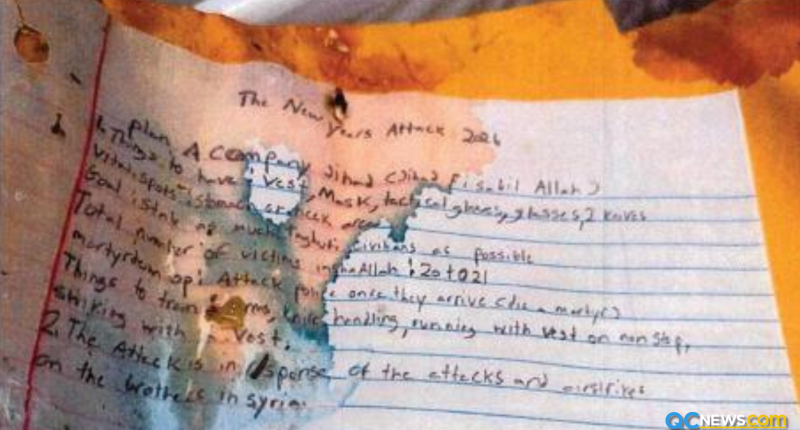 The New Years Attack 2026
Plan A company Jihad (Jihad fi sabil Allah)
1. Things to have: Vest, Mask, tactical gloves, glasses, 2 knives
Vital spots: stomach or neck area
Goal: stab as much civilians as possible
Total number of victims inshaAllah: 20 to 21
martyrdom op: Attack police once they arrive (die a martyr)
Things to train: arms, knife handling, running with vest on non stop,
striking with vest.
2. The Attack is in response of the attacks and airstrikes
on the brothers in syria.
QCNEWS.com